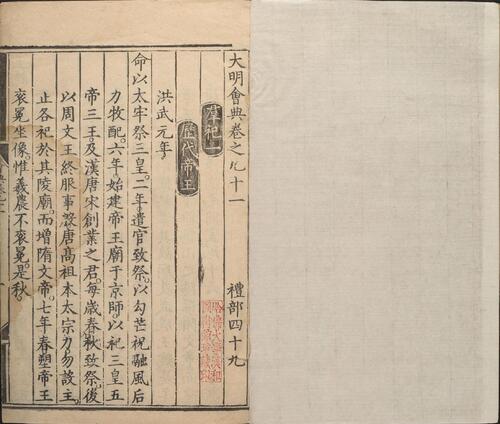 大明會典卷之九十一 禮部四十九
羣祀一
歷代帝王
洪武元年
命以太牢祭三皇。二年遣官致祭。以勾芒祝融風后
力牧配。六年始建帝王廟于京師。以祀三皇五
帝三王。及漢唐宋創業之君。每歲春秋致祭。後
以周文王終服事殷唐高祖本太宗力勿設主。
止各祀於其陵廟。而增隋文帝。七年春塑帝王
袞冕坐像。惟羲農不袞冕。是秋。